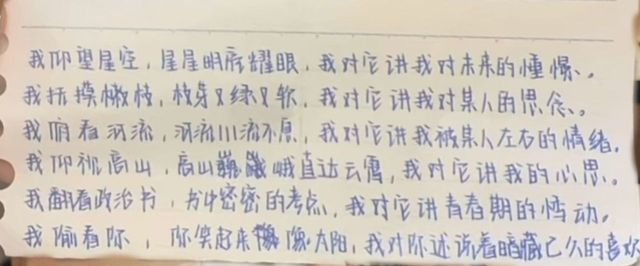 我仰望星空，星星明亮耀眼，我对它讲我对未来的憧憬。
我抚摸嫩枝，枝芽又绿又软，我对它讲我对某人的思念。
我俯看河流，河流川流不息，我对它讲我被某人左右的情绪。
我仰视高山，高山巍峨直达云霄，我对它讲我的心思。
我翻看政治书，书中密密的考点，我对它讲青春期的悸动。
我偷看你，你笑起来像太阳，我对你述说着暗藏已久的喜欢